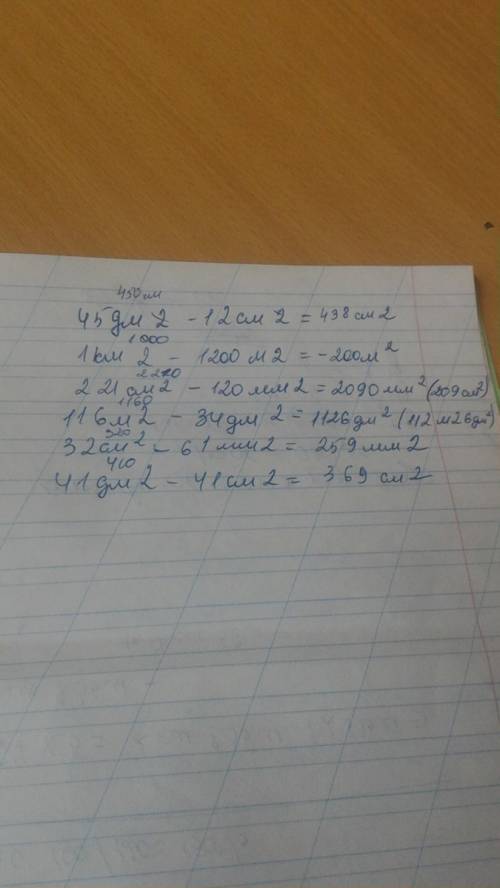 450 см
45дм 2 - 12 см 2 = 438 см2
1000
1 км 2 - 1200 м2 = -200м²
2210
221 см2 - 120 мм2 = 2090 мм² (209см²)
1160
116м2 - 34 дм2 = 1126 дм² (112 м26дм²)
320
32см² - 61 мм2 = 259 мм2
410
41 дм2 - 41 см2 = 369 см2